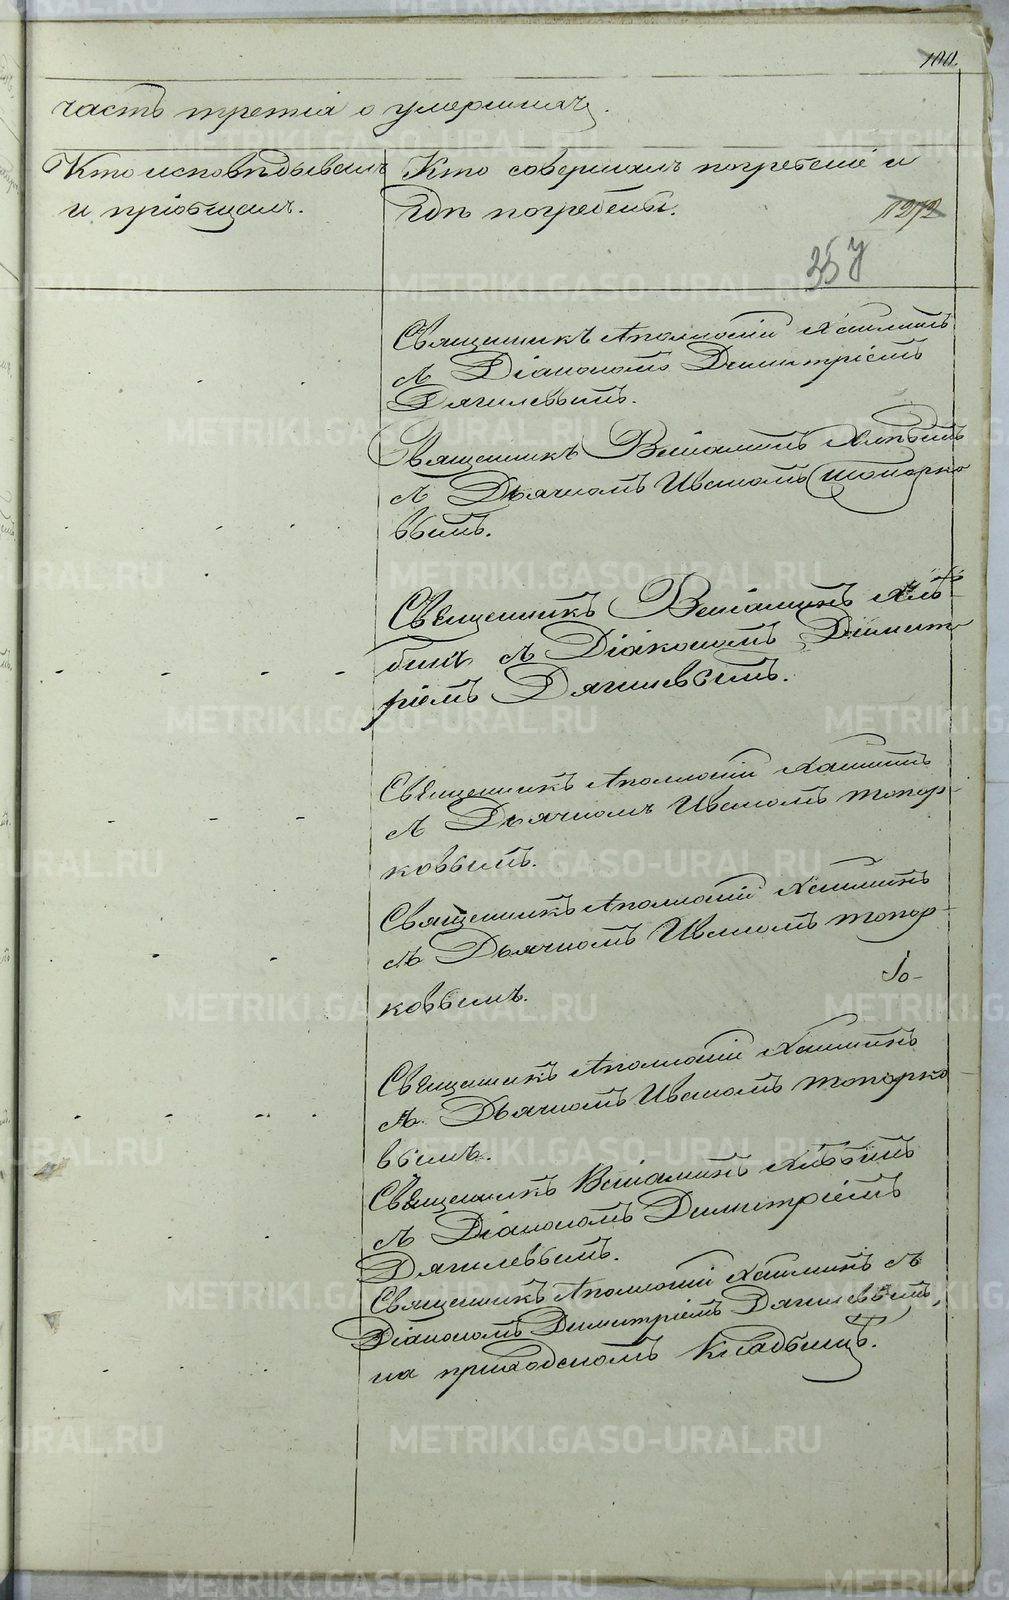 часть третія о умершихъ.
Кто исповѣдывалъ
и пріобщалъ.
Кто совершалъ погребеніе и
гдѣ погребены.
1212
357
Священникъ Аполлоній
съ Діакономъ Димитріемъ
Дягилевымъ.
Священникъ Веніаминъ
съ Дьячкомъ Иваномъ Топорко
вымъ.
Священникъ Веніаминъ
съ Діакономъ Димит
ріемъ Дягилевымъ.
Священникъ Аполлоній
съ Дьячкомъ Иваномъ Топор-
ковымъ.
Священникъ Аполлоній
съ Дьячкомъ Иваномъ Топор-
ковымъ.
Священникъ Аполлоній
съ Дьячкомъ Иваномъ Топорко
вымъ.
Священникъ Веніаминъ
съ Діакономъ Димитріемъ
Дягилевымъ.
Священникъ Аполлоній съ
Діакономъ Димитріемъ Дягилевымъ,
на приходскомъ кладбищѣ.
METRIKI.GASO-URAL.RU